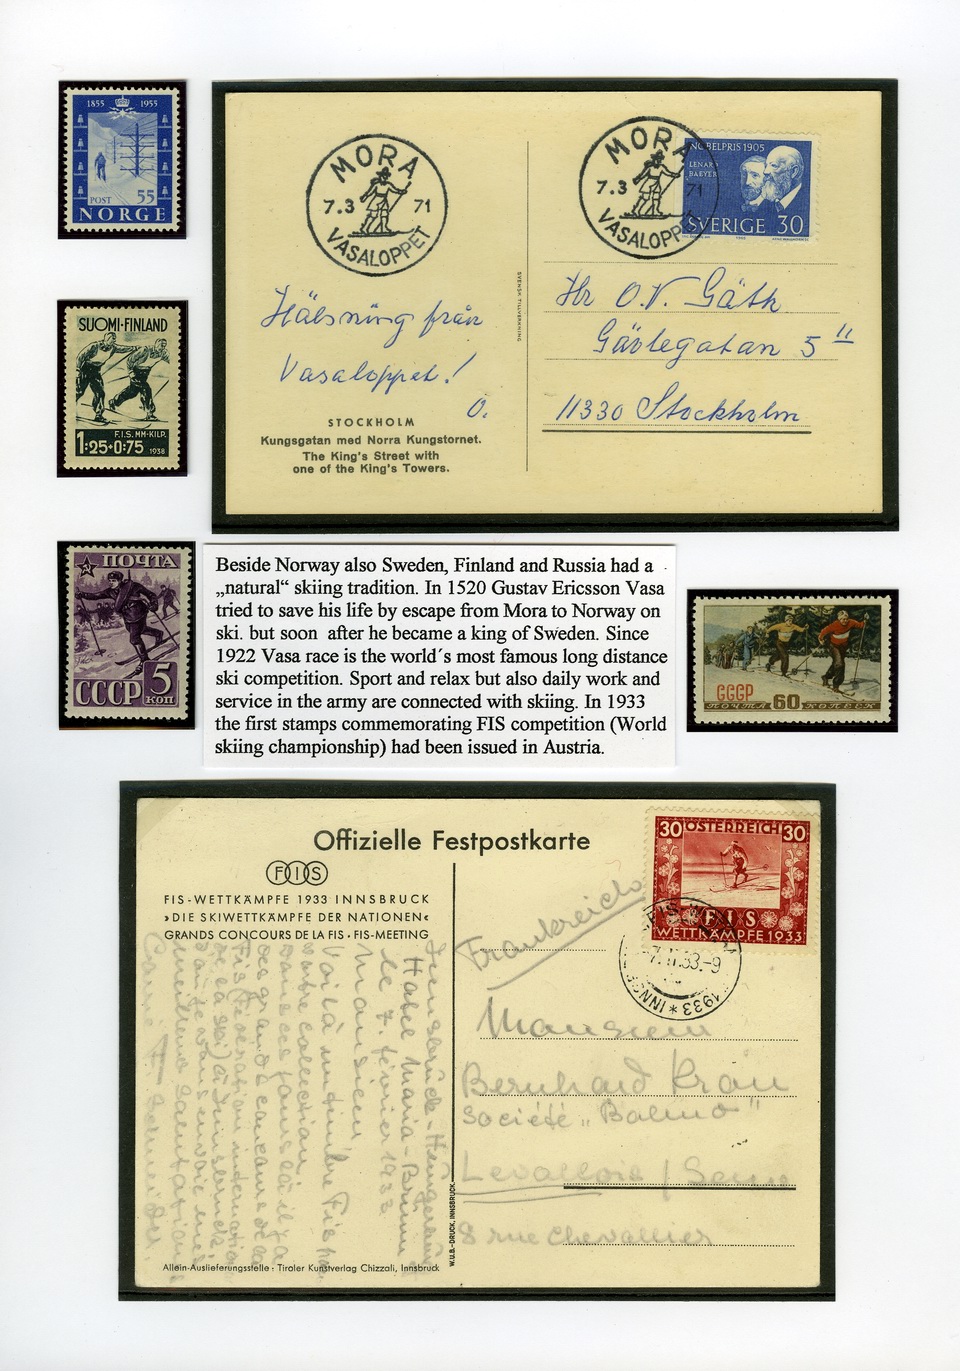 1855 1955
POST 55
NORGE
MORA
7.3 71
VASALOPPET
MORA
7.3 71
VASALOPPET
NOBELPRIS 1905
LENARD
BAEYER
SVERIGE 30
Hälsning från
Vasaloppet!
Ö.
STOCKHOLM
Kungsgatan med Norra Kungstornet.
The King's Street with
one of the King's Towers.
SVENSK TILLVERKNING
Hr O.V. Gäth
Gävlegatan 5 II
11330 Stockholm
SUOMI-FINLAND
F.I.S. MM-KILP.
1:25+0:75 1938
ПОЧТА
СССР 5 КОП
Beside Norway also Sweden, Finland and Russia had a
„natural“ skiing tradition. In 1520 Gustav Ericsson Vasa
tried to save his life by escape from Mora to Norway on
ski. but soon after he became a king of Sweden. Since
1922 Vasa race is the world´s most famous long distance
ski competition. Sport and relax but also daily work and
service in the army are connected with skiing. In 1933
the first stamps commemorating FIS competition (World
skiing championship) had been issued in Austria.
СССР
ПОЧТА 60 КОПЕЕК
Offizielle Festpostkarte
FIS
FIS-WETTKÄMPFE 1933 INNSBRUCK
»DIE SKIWETTKÄMPFE DER NATIONEN«
GRANDS CONCOURS DE LA FIS · FIS-MEETING
30 ÖSTERREICH 30
FIS
WETTKÄMPFE 1933
7.II.33.-9
1933 * INNS
Frankreich
Monsieur
Bernhard Krön
Société „Balmo"
Levallois / Seine
8 rue Chevallier
Innsbruck-Hungerburg
Hotel Maria-Brunn
le 7. février 1933
Monsieur
Voilà un timbre Fis
votre collection.
W.U.B.-DRUCK, INNSBRUCK
Allein-Auslieferungsstelle: Tiroler Kunstverlag Chizzali, Innsbruck